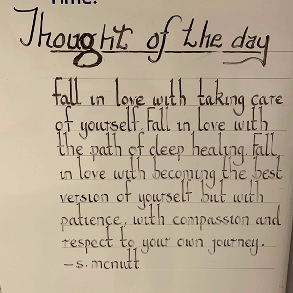 Time!
Thought of the day
fall in love with taking care
of yourself. Fall in love with
the path of deep healing. Fall
in love with becoming the best
version of yourself but with
patience, with compassion and
respect to your own journey.
-s. mcnutt